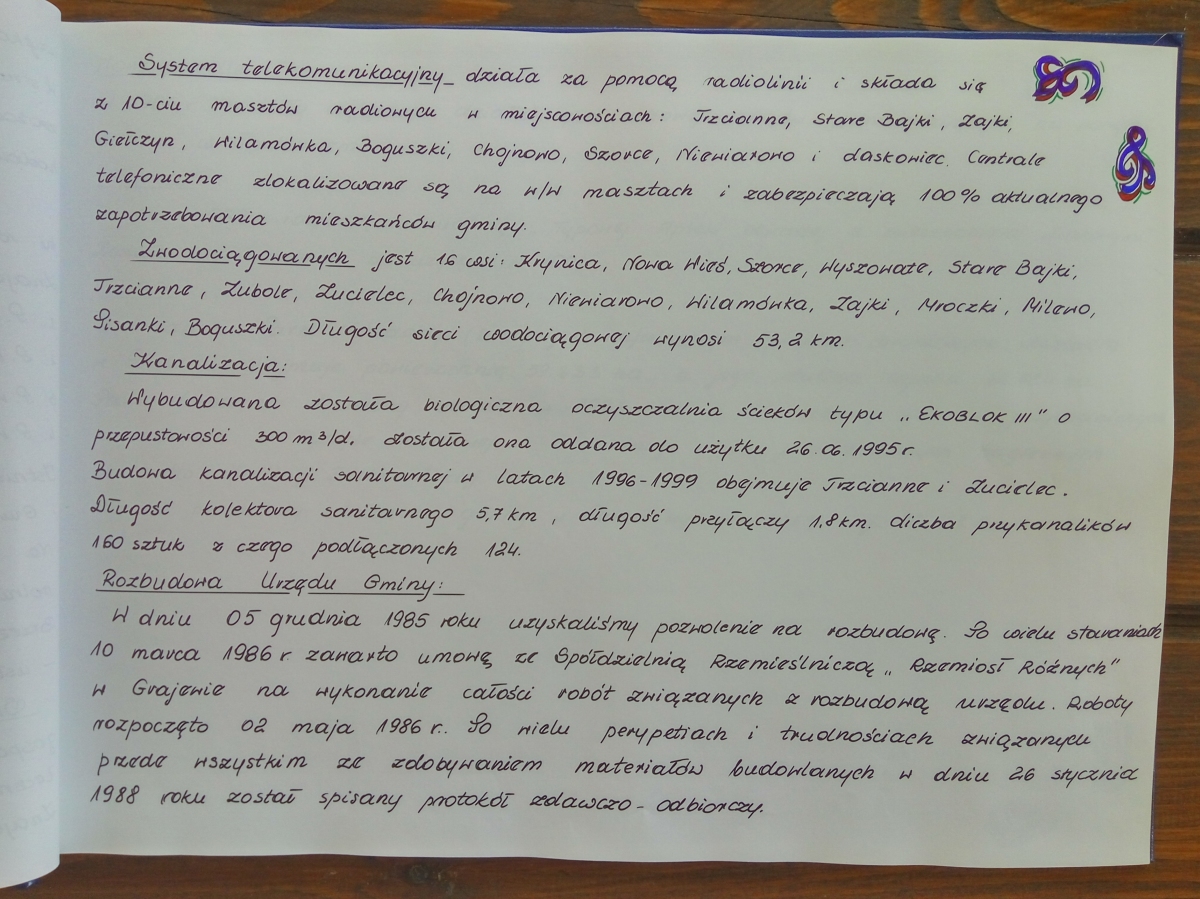 System telekomunikacyjny działa za pomocą radiolinii i składa się
z 10-ciu masztów radiowych w miejscowościach: Trzcianne, Stare Bajki, Zajki,
Giełczyn, Wilamówka, Boguszki, Chojnowo, Szorce, Niewiarowo i Laskowiec. Centrale
telefoniczne zlokalizowane są na w/w masztach i zabezpieczają 100% aktualnego
zapotrzebowania mieszkańców gminy.
Zwodociągowanych jest 16 wsi: Krynica, Nowa Wieś, Szorce, Wyszowate, Stare Bajki,
Trzcianne, Zubole, Zucielec, Chojnowo, Niewiarowo, Wilamówka, Zajki, Mroczki, Milewo,
Pisanki, Boguszki. Długość sieci wodociągowej wynosi 53,2 km.
Kanalizacja:
Wybudowana została biologiczna oczyszczalnia ścieków typu „EKOBLOK III" o
przepustowości 300 m³/d. Została ona oddana do użytku 26.06.1995 r.
Budowa kanalizacji sanitarnej w latach 1996-1999 obejmuje Trzcianne i Zucielec.
Długość kolektora sanitarnego 5,7 km, długość przyłączy 1,8 km. Liczba przykanalików
160 sztuk z czego podłączonych 124.
Rozbudowa Urzędu Gminy:
W dniu 05 grudnia 1985 roku uzyskaliśmy pozwolenie na rozbudowę. Po wielu staraniach
10 marca 1986 r. zawarto umowę ze Spółdzielnią Rzemieślniczą „Rzemiosł Różnych"
w Grajewie na wykonanie całości robót związanych z rozbudową urzędu. Roboty
rozpoczęto 02 maja 1986 r.. Po wielu perypetiach i trudnościach związanych
przede wszystkim ze zdobywaniem materiałów budowlanych w dniu 26 stycznia
1988 roku został spisany protokół zdawczo-odbiorczy.